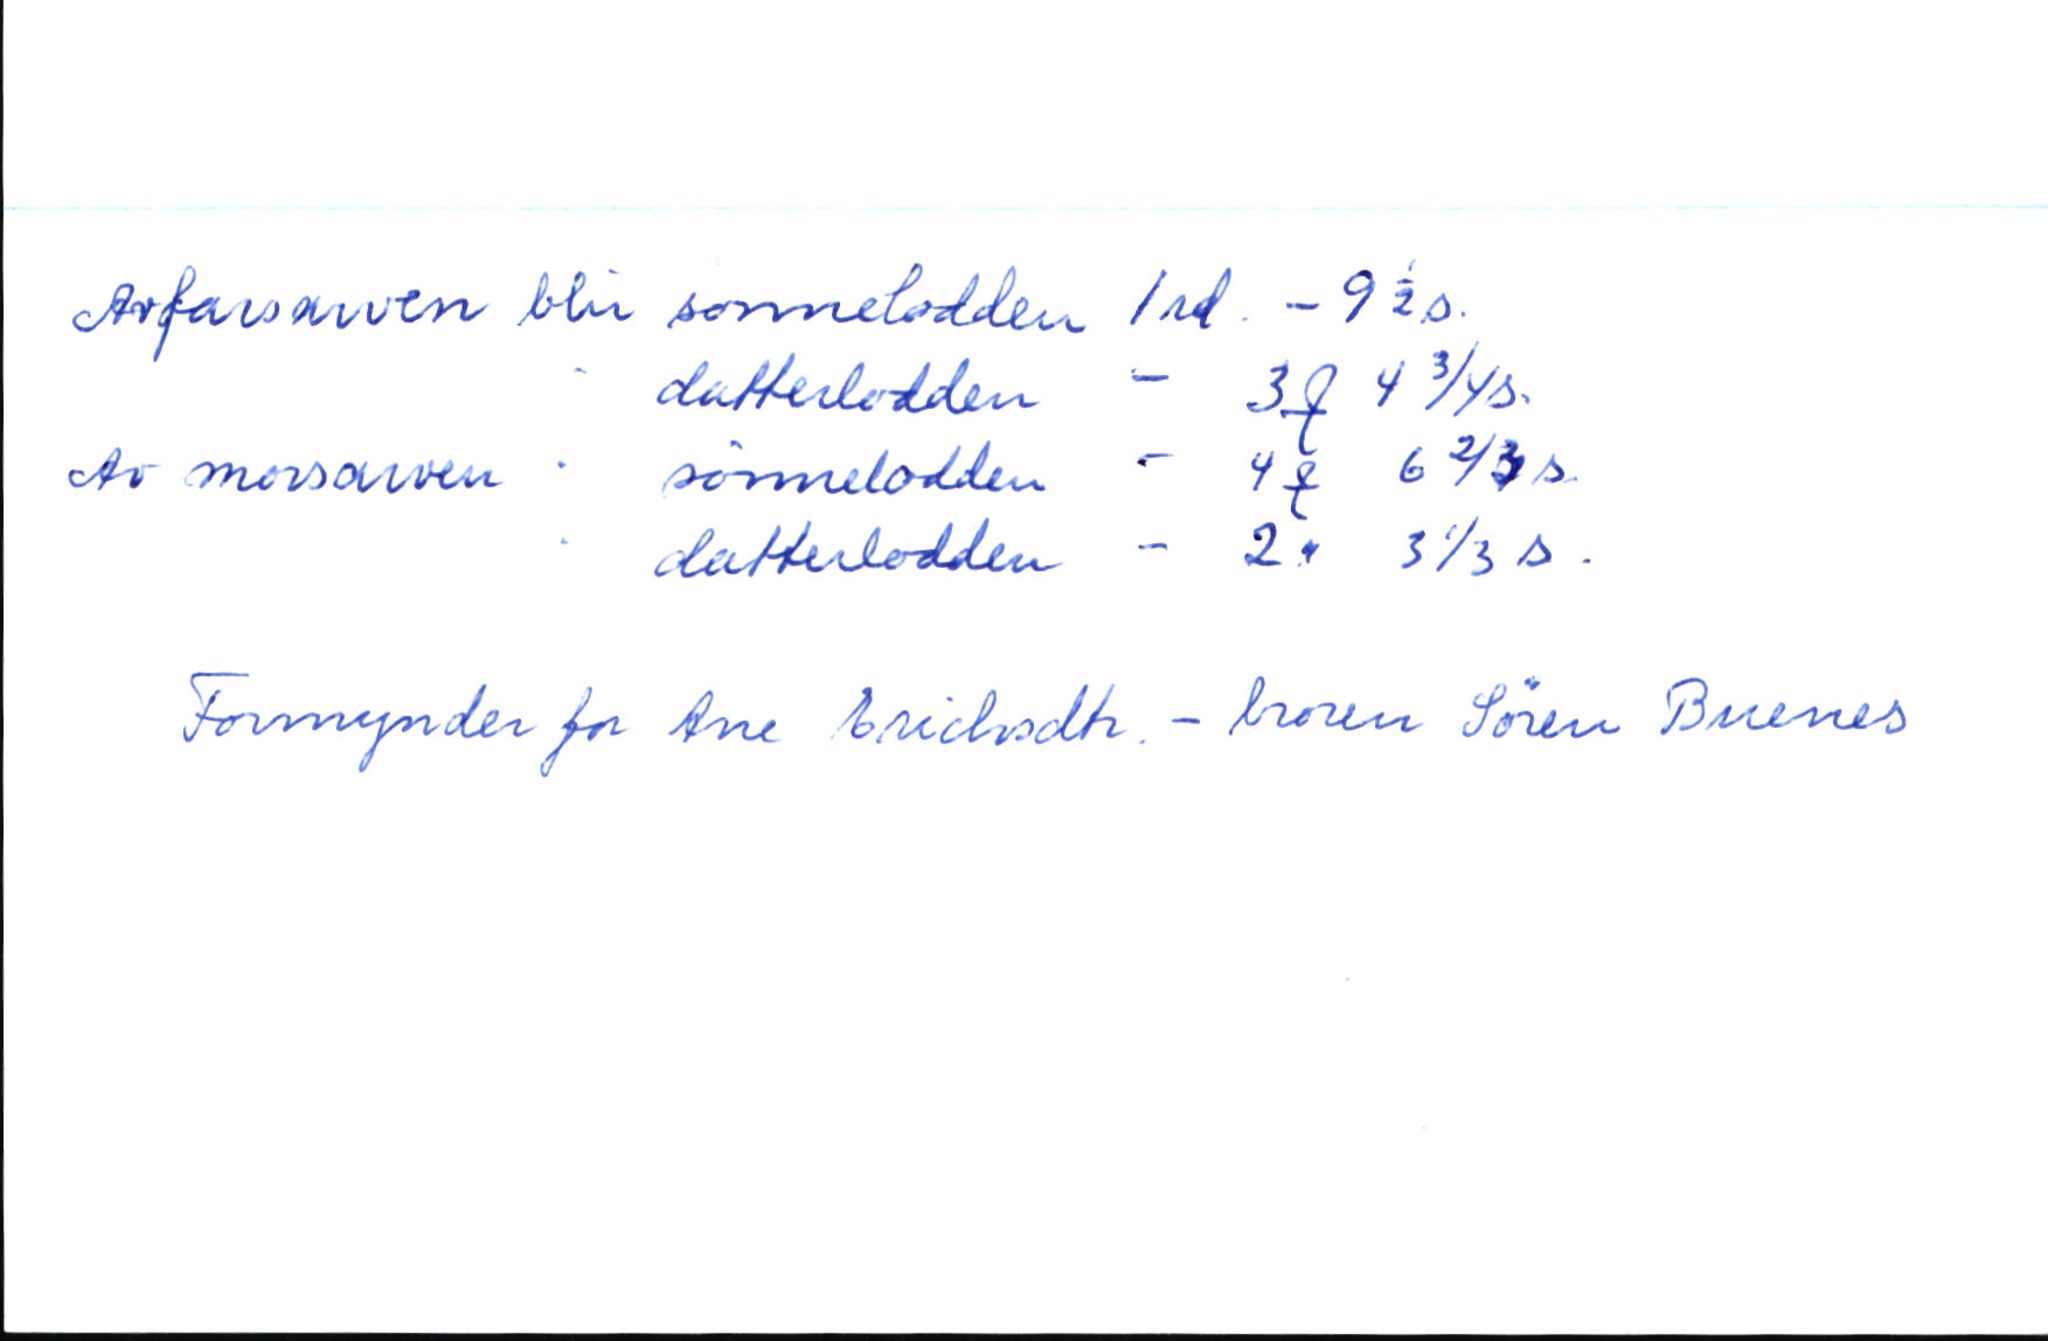 Av farsarven blir sönnelodden 1 rd. - 9 1/2 s.
" datterlodden - 3 ¤ 4 3/4 s.
Av morsarven " sönnelodden - 4 ¤ 6 2/3 s.
" datterlodden - 2 " 3 1/3 s.
Formynder for Ane Erichsdtr. - broren Sören Buenes